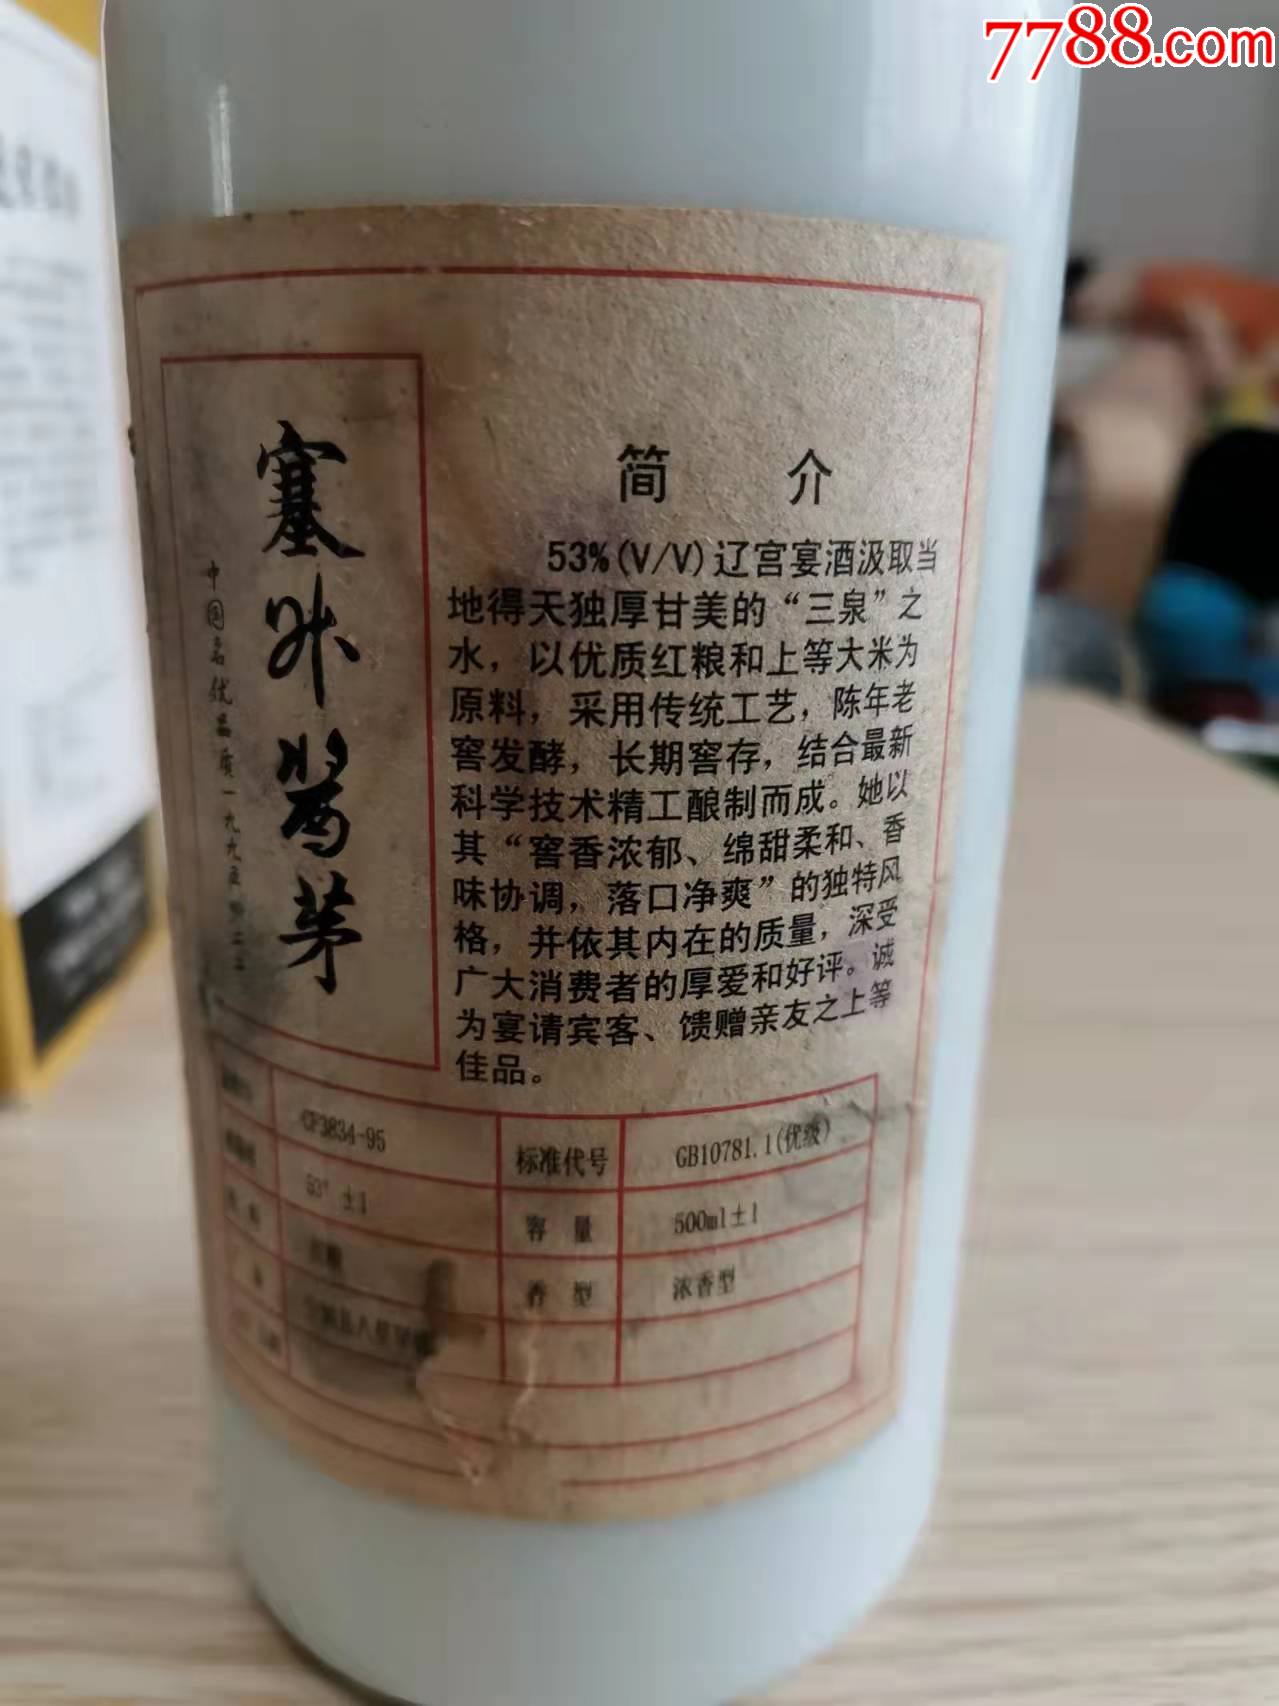 7788.com
塞外酱茅
中国名优品质一九九五
简 介
53%(V/V)辽宫宴酒汲取当
地得天独厚甘美的“三泉”之
水，以优质红粮和上等大米为
原料，采用传统工艺，陈年老
窖发酵，长期窖存，结合最新
科学技术精工酿制而成。她以
其“窖香浓郁、绵甜柔和、香
味协调，落口净爽”的独特风
格，并依其内在的质量，深受
广大消费者的厚爱和好评。诚
为宴请宾客、馈赠亲友之上等
佳品。
CF3834-95 标准代号 GB10781.1(优级)
53°±1 容 量 500ml±1
香 型 浓香型